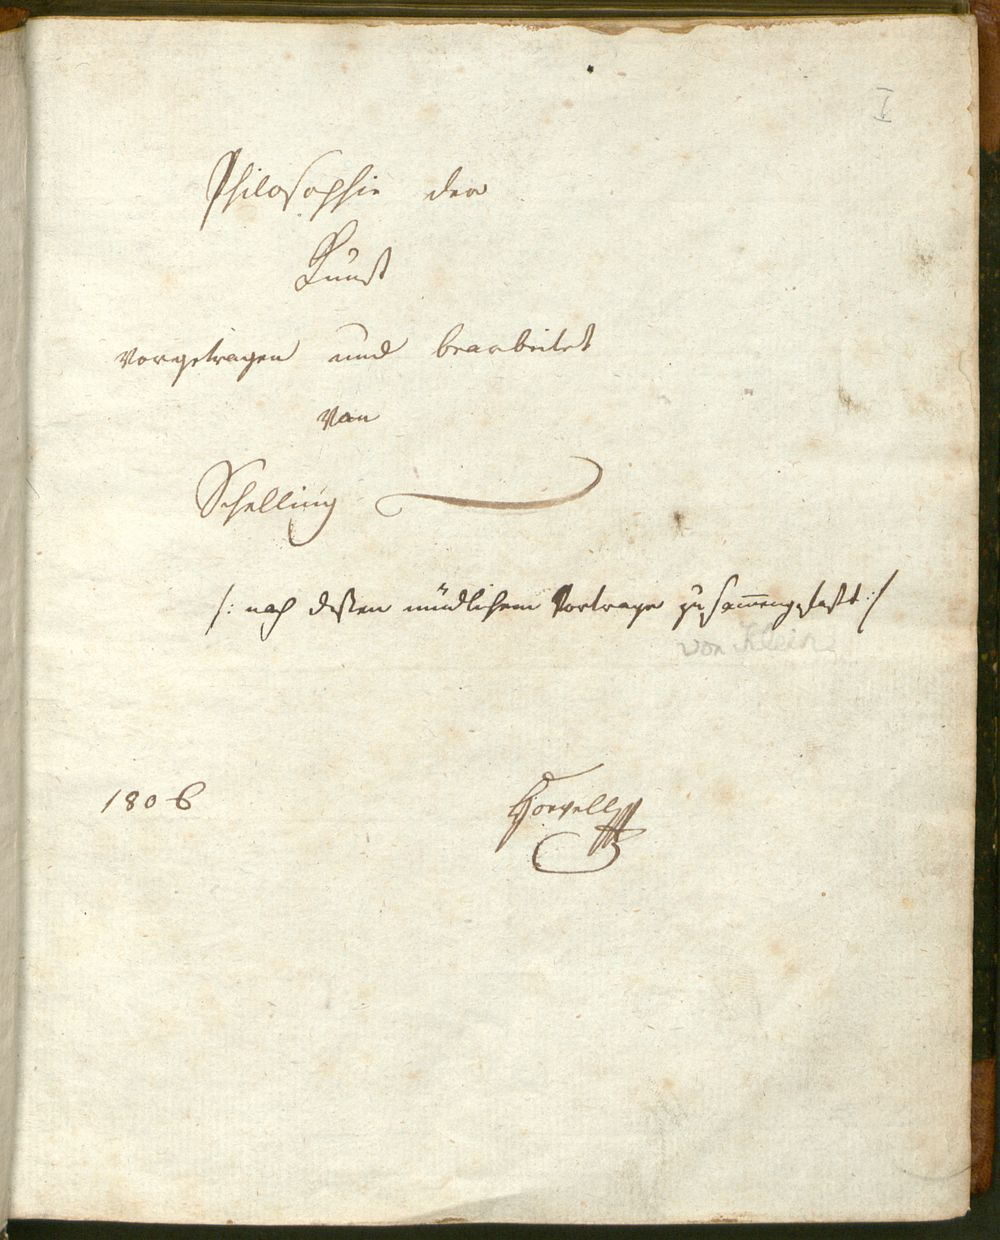 I
Philosophie der
Kunst
vorgetragen und bearbeitet
von
Schelling
/: nach dessen mündlichem Vortrage zusammengefaßt :/
von Klein
1806